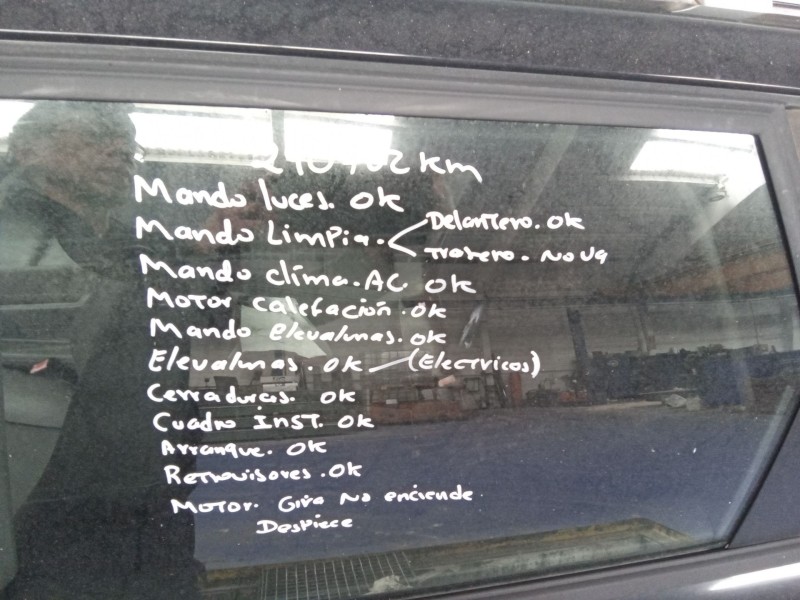 km
Mando luces. OK
Mando Limpia. Delantero. OK
Trasero. No va
Mando clima. AC OK
Motor calefación. OK
Mando elevalunas. OK
Elevalunas. OK — (Electricos)
Cerraduras. OK
Cuadro INST. OK
Arranque. OK
Retrovisores. OK
Motor. Gira No enciende
Despiece